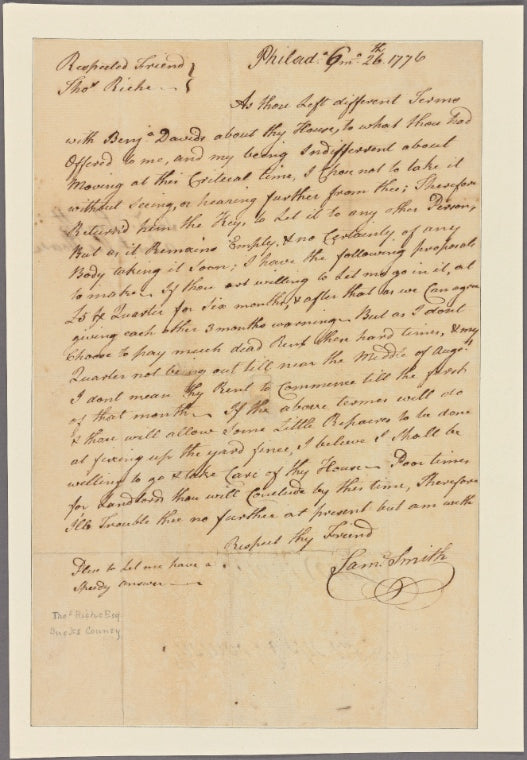 Philad.a 6 mo. 26th 1776
Respected Friend
Thos. Riche
As thou Left different Terms
with Benj.a Davids about thy House, to what thou had
Offered to me, and my being Indifferent about
Moving at this Critical time, I Chose not to take it
without Seeing, or hearing further from thee; Therefore
Returned him the Key, to Let it to any other Person;
But as it Remains Empty, & no Certainty of any
Body taking it Soon; I have the following proposals
to make. If thou art willing to Let me go in it, at
£5 ⅌ Quarter for Six months, & after that as we Can agree
giving each other 3 months warning. But as I don't
Choose to pay much dead Rent these hard times, & my
Quarter not being out till near the Middle of Augst.
I dont mean thy Rent to Commence till the first
of that month. If the above termes will do
& thou will allow Some Little Repaires to be done
at fixing up the yard fence, I believe I Shall be
willing to go & take Care of thy House. Poor times
for Landlords thou will Conclude by this time, Therefore
I'll Trouble thee no further at present but am with
Respect thy Friend
Saml. Smith
Please to Let me have a
Speedy answer
Thos Riche Esq
Bucks County